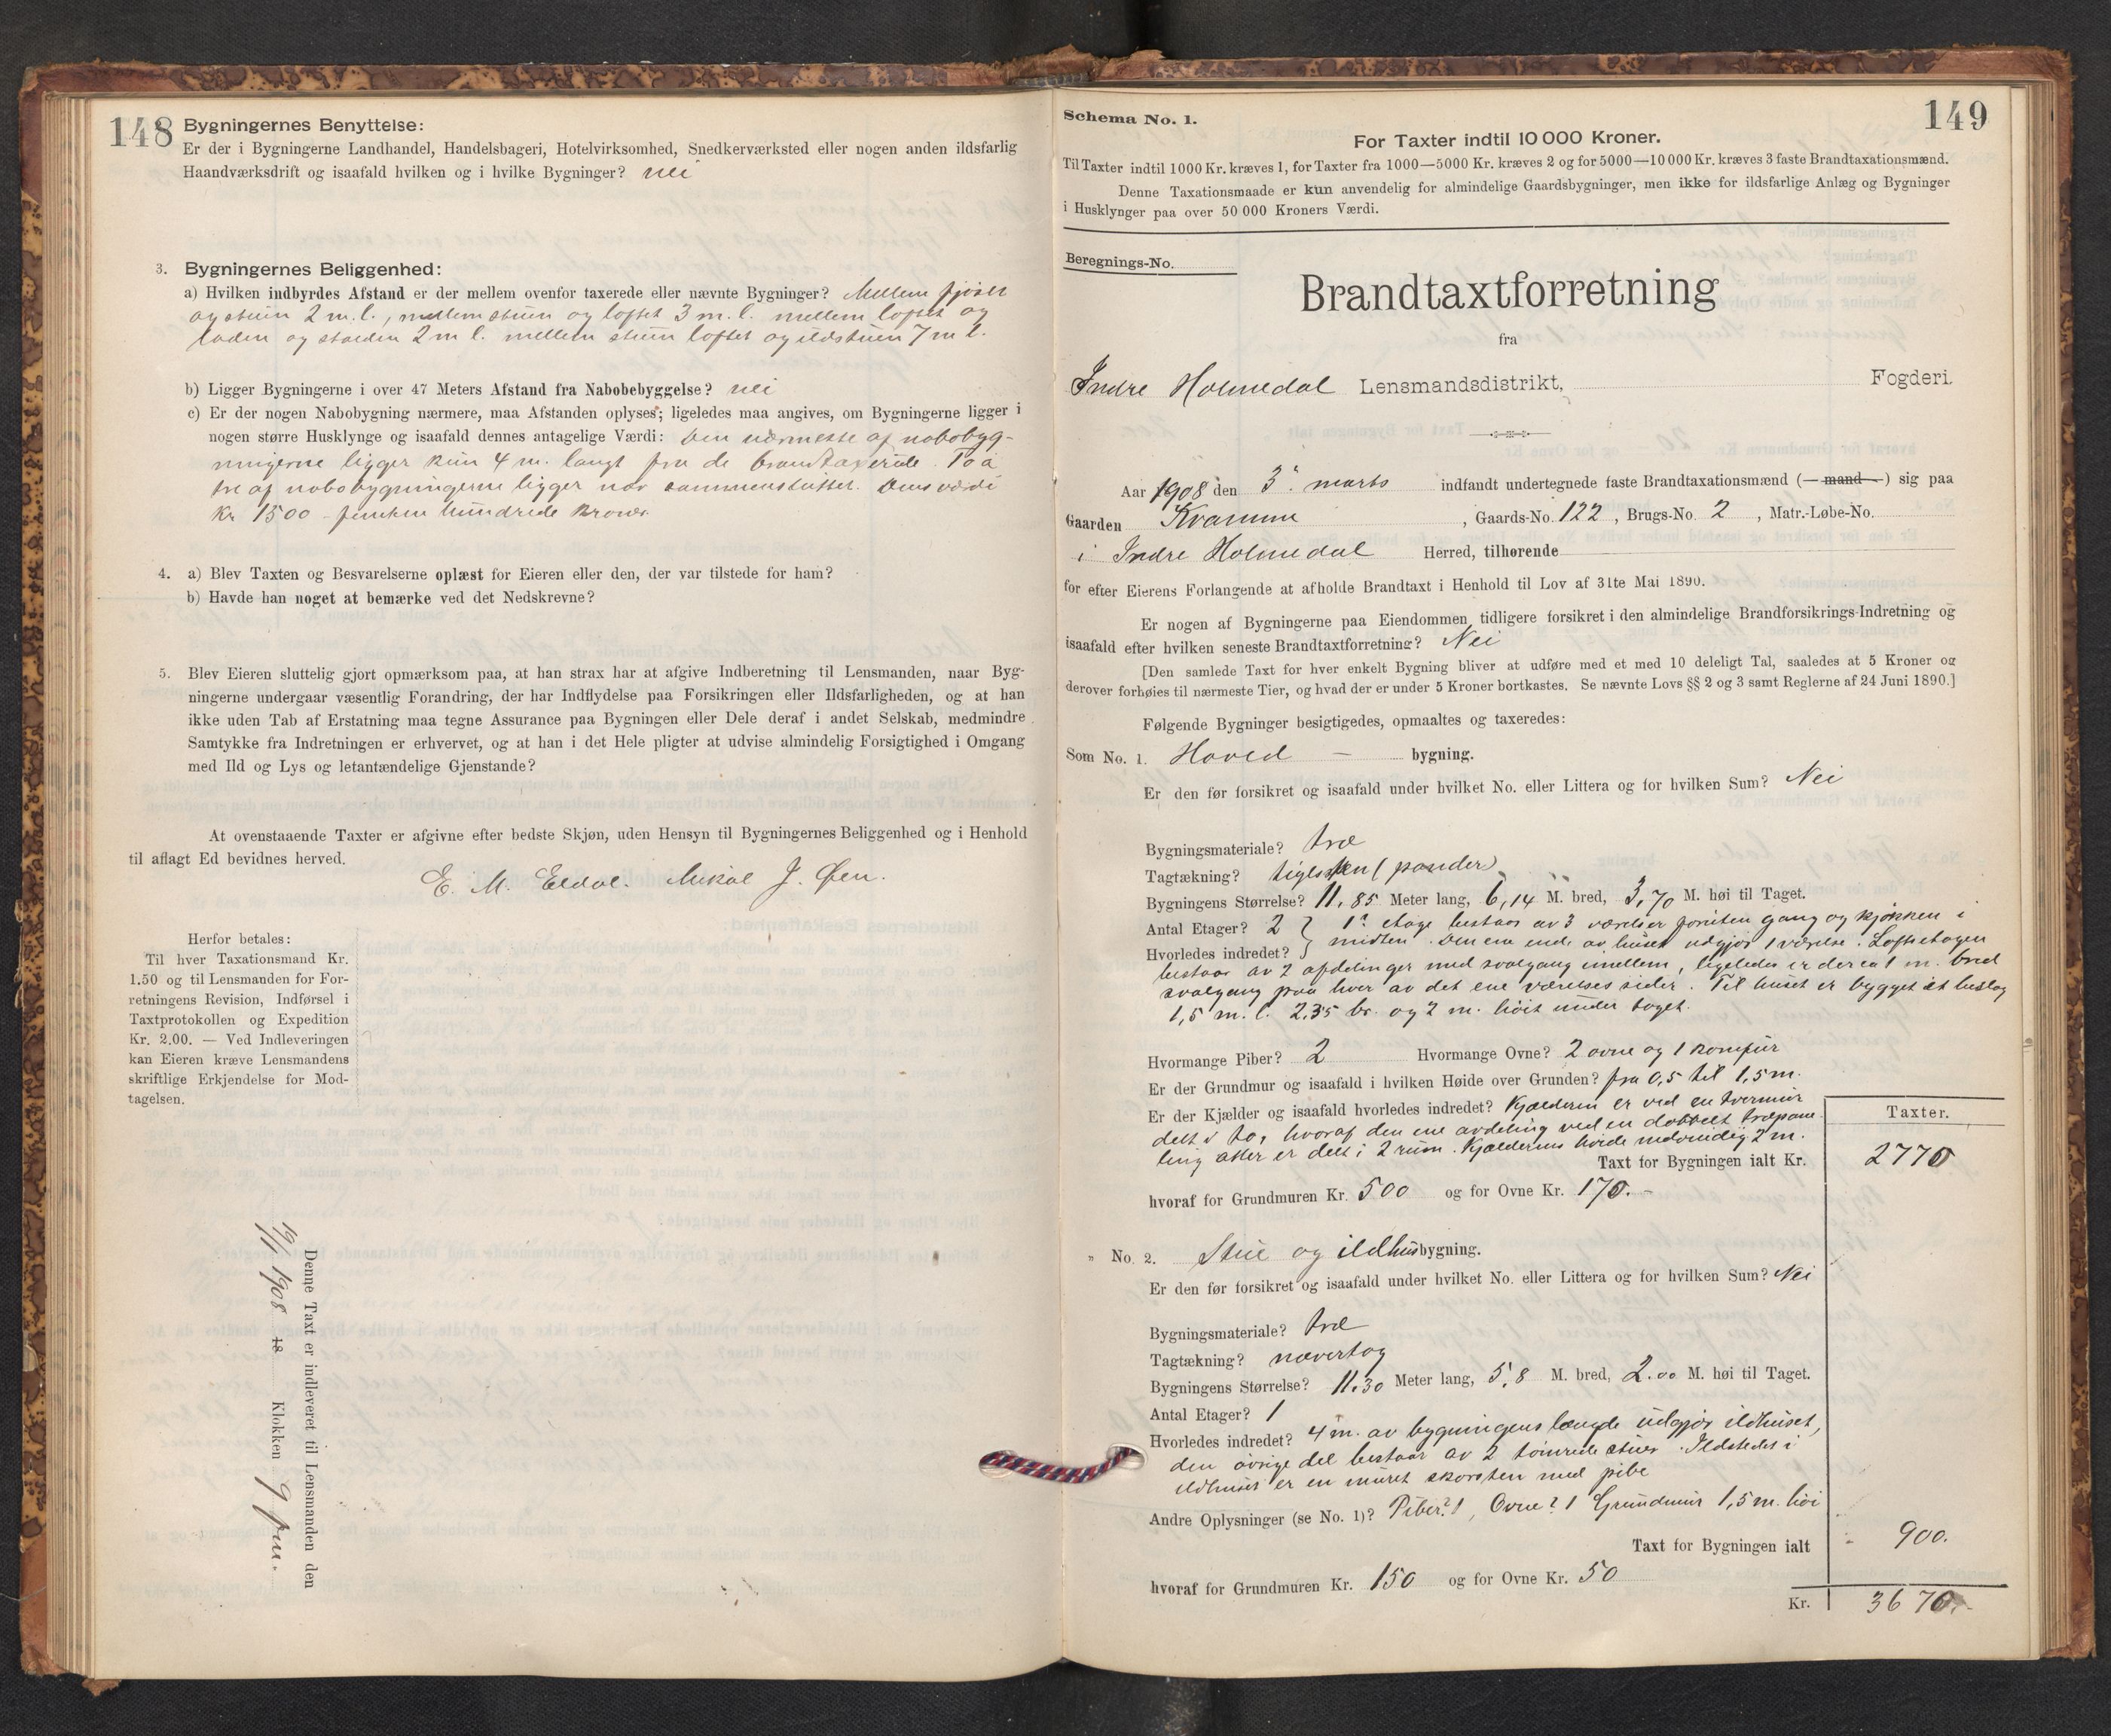 148
Bygningernes Benyttelse:
Er der i Bygningerne Landhandel, Handelsbageri, Hotelvirksomhed, Snedkerværksted eller nogen anden ildsfarlig
Haandværksdrift og isaafald hvilken og i hvilke Bygninger? nei
3. Bygningernes Beliggenhed:
a) Hvilken indbyrdes Afstand er der mellem ovenfor taxerede eller nævnte Bygninger? Mellem fjöset
og stuen 2 m. l., mellem stuen og loftet 3 m. l. mellem loftet og
laden og stalden 2 m l. mellem stuen loftet og ildstuen 7 m l.
b) Ligger Bygningerne i over 47 Meters Afstand fra Nabobebyggelse? nei
c) Er der nogen Nabobygning nærmere, maa Afstanden oplyses; ligeledes maa angives, om Bygningerne ligger i
nogen større Husklynge og isaafald dennes antagelige Værdi: Den nærmeste af nabobyg-
ningerne ligger kun 4 m. langt fra de brandtaxerede. To á
tre af nabobygningerne ligger nær sammensluttet. Deres værdi
Kr 1500 - femten hundrede kroner.
4. a) Blev Taxten og Besvarelserne oplæst for Eieren eller den, der var tilstede for ham?
b) Havde han noget at bemærke ved det Nedskrevne?
5. Blev Eieren sluttelig gjort opmærksom paa, at han strax har at afgive Indberetning til Lensmanden, naar Byg-
ningerne undergaar væsentlig Forandring, der har Indflydelse paa Forsikringen eller Ildsfarligheden, og at han
ikke uden Tab af Erstatning maa tegne Assurance paa Bygningen eller Dele deraf i andet Selskab, medmindre
Samtykke fra Indretningen er erhvervet, og at han i det Hele pligter at udvise almindelig Forsigtighed i Omgang
med Ild og Lys og letantændelige Gjenstande?
At ovenstaaende Taxter er afgivne efter bedste Skjøn, uden Hensyn til Bygningernes Beliggenhed og i Henhold
til aflagt Ed bevidnes herved.
E. M. Eldal. Mikal J. Øen.
Herfor betales:
Til hver Taxationsmand Kr.
1.50 og til Lensmanden for For-
retningens Revision, Indførsel i
Taxtprotokollen og Expedition
Kr. 2.00. — Ved Indleveringen
kan Eieren kræve Lensmandens
skriftlige Erkjendelse for Mod-
tagelsen.
Denne Taxt er indleveret til Lensmanden den
1908 18 Klokken 9 fm.
149
Schema No. 1.
For Taxter indtil 10 000 Kroner.
Til Taxter indtil 1000 Kr. kræves 1, for Taxter fra 1000—5000 Kr. kræves 2 og for 5000—10 000 Kr. kræves 3 faste Brandtaxationsmænd.
Denne Taxationsmaade er kun anvendelig for almindelige Gaardsbygninger, men ikke for ildsfarlige Anlæg og Bygninger
i Husklynger paa over 50 000 Kroners Værdi.
Beregnings-No.
Brandtaxtforretning
fra
Indre Holmedal Lensmandsdistrikt, Fogderi.
Aar 1908 den 3. marts indfandt undertegnede faste Brandtaxationsmænd (—mand—) sig paa
Gaarden Kvamme, Gaards-No. 122, Brugs-No. 2, Matr.-Løbe-No.
i Indre Holmedal Herred, tilhørende
for efter Eierens Forlangende at afholde Brandtaxt i Henhold til Lov af 31te Mai 1890.
Er nogen af Bygningerne paa Eiendommen tidligere forsikret i den almindelige Brandforsikrings-Indretning og
isaafald efter hvilken seneste Brandtaxtforretning? Nei
[Den samlede Taxt for hver enkelt Bygning bliver at udføre med et med 10 deleligt Tal, saaledes at 5 Kroner og
derover forhøies til nærmeste Tier, og hvad der er under 5 Kroner bortkastes. Se nævnte Lovs §§ 2 og 3 samt Reglerne af 24 Juni 1890.]
Følgende Bygninger besigtigedes, opmaaltes og taxeredes:
Som No. 1. Hoved — bygning.
Er den før forsikret og isaafald under hvilket No. eller Littera og for hvilken Sum? Nei
Bygningsmateriale? træ
Tagtækning? tiglsten (pander)
Bygningens Størrelse? 11,85 Meter lang, 6,14 M. bred, 3,70 M. høi til Taget.
Antal Etager? 2 } 1ste etage bestaar av 3 værelser foruten gang og kjøkken i
Hvorledes indredet? midten. Den ene ende av huset udgjør 1 værelse. Loftsetagen
bestaar av 2 afdelinger med svalgang imellem, ligeledes er der ca 1 m. bred
svalgang paa hver av det ene værelses sider. Til huset er bygget et beslag
1,5 m. l. 2,35 br. og 2 m. höit under taget.
Hvormange Piber? 2 Hvormange Ovne? 2 ovne og 1 komfur
Er der Grundmur og isaafald i hvilken Høide over Grunden? fra 0,5 til 1,5 m.
Er der Kjælder og isaafald hvorledes indredet? Kjælderen er ved en tvermur
delt i to, hvoraf den ene avdeling ved en dobbelt træpane
ling atter er delt i 2 rum. Kjælderens høide indvendig 2 m.
Taxter.
Taxt for Bygningen ialt Kr. 2770
hvoraf for Grundmuren Kr. 500 og for Ovne Kr. 170.-
" No. 2. Stue og ildhusbygning.
Er den før forsikret og isaafald under hvilket No. eller Littera og for hvilken Sum? Nei
Bygningsmateriale? træ
Tagtækning? nævertag
Bygningens Størrelse? 11.30 Meter lang, 5,8 M. bred, 2.00 M. høi til Taget.
Antal Etager? 1
Hvorledes indredet? 4 m. av bygningens længde udgjør ildhuset,
den øvrige del bestaar av 2 tømrede stuer. Ildstedet i
ildhuset er en muret skorsten med pibe
Andre Oplysninger (se No. 1)? Piber? 1, Ovne? 1 Grundmur 1,5 m. høi
Taxt for Bygningen ialt - 900.
hvoraf for Grundmuren Kr. 150 og for Ovne Kr. 50
Kr. 3670.-